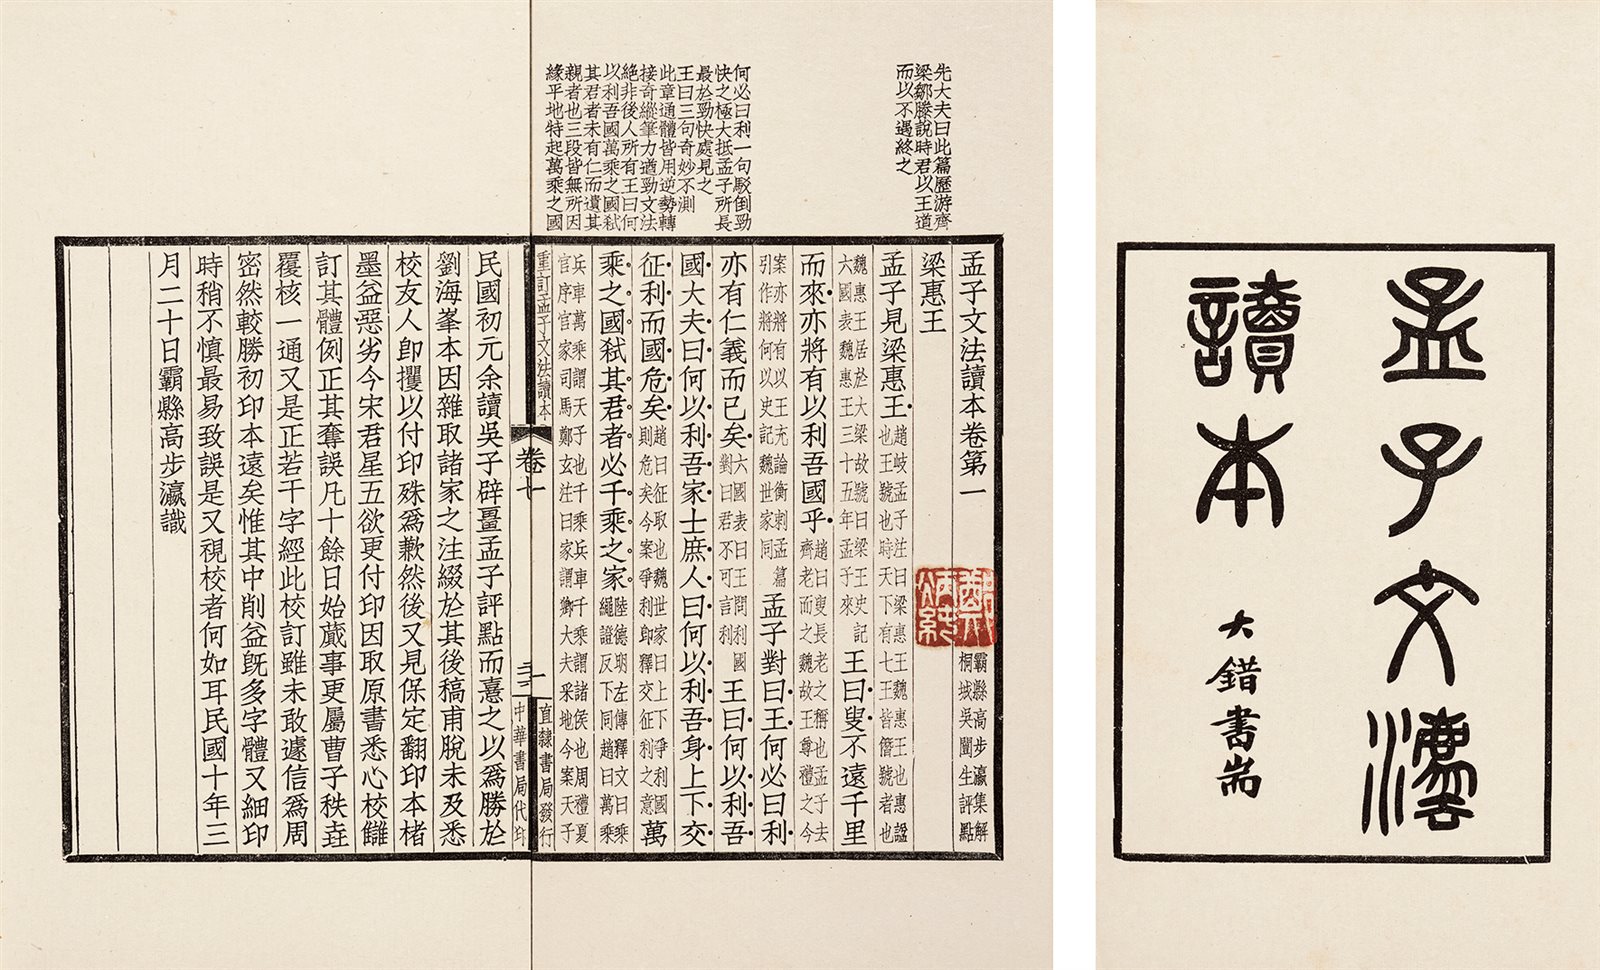 孟子文灋
讀本
大錯書耑
先大夫曰此篇歷游齊
梁鄒滕說時君以王道
而以不遇終之
何必曰利一句駁倒勁
快之極大抵孟子所長
最於勁快處見之
王曰三句奇妙不測
此章通體皆用逆勢轉
接奇縱筆力遒勁文法
絕非後人所有王曰何
以利吾國萬乘之國弒
其君者未有仁而遺其
親者也三段皆無所因
緣平地特起萬乘之國
孟子文法讀本卷第一
霸縣高步瀛集解
桐城吳闓生評點
梁惠王
孟子見梁惠王
趙岐孟子注曰梁惠王魏惠王也惠諡
也王號也時天下有七王皆僭號者也
魏惠王居於大梁故號曰梁王史記
六國表魏惠王三十五年孟子來
王曰叟不遠千里
而來亦將有以利吾國乎
趙曰叟長老之稱也孟子去
齊老而之魏故王尊禮之今
案亦將有以王充論衡刺孟篇
引作將何以史記魏世家同
孟子對曰王何必曰利
亦有仁義而已矣
六國表曰王問利國
對曰君不可言利
王曰何以利吾
國大夫曰何以利吾家士庶人曰何以利吾身上下交
征利而國危矣
趙曰征取也魏世家曰上下爭利國
則危矣今案爭利即釋交征利之意
萬
乘之國弒其君者必千乘之家
陸德明左傳釋文曰乘
繩證反下同趙曰萬乘
兵車萬乘謂天子也千乘兵車千乘謂諸侯也周禮夏
官序官家司馬鄭玄注曰家謂卿大夫采地今案天子
重訂孟子文法讀本
一
直隸書局發行
卷七
中華書局代印
民國初元余讀吳子辟畺孟子評點而憙之以爲勝於
劉海峯本因雜取諸家之注綴於其後稿甫脫未及悉
校友人卽攫以付印殊爲歉然後又見保定翻印本楮
墨益惡劣今宋君星五欲更付印因取原書悉心校讎
訂其體例正其奪誤凡十餘日始蕆事更屬曹子秩垚
覆核一通又是正若干字經此校訂雖未敢遽信爲周
密然較勝初印本遠矣惟其中削益旣多字體又細印
時稍不慎最易致誤是又視校者何如耳民國十年三
月二十日霸縣高步瀛識